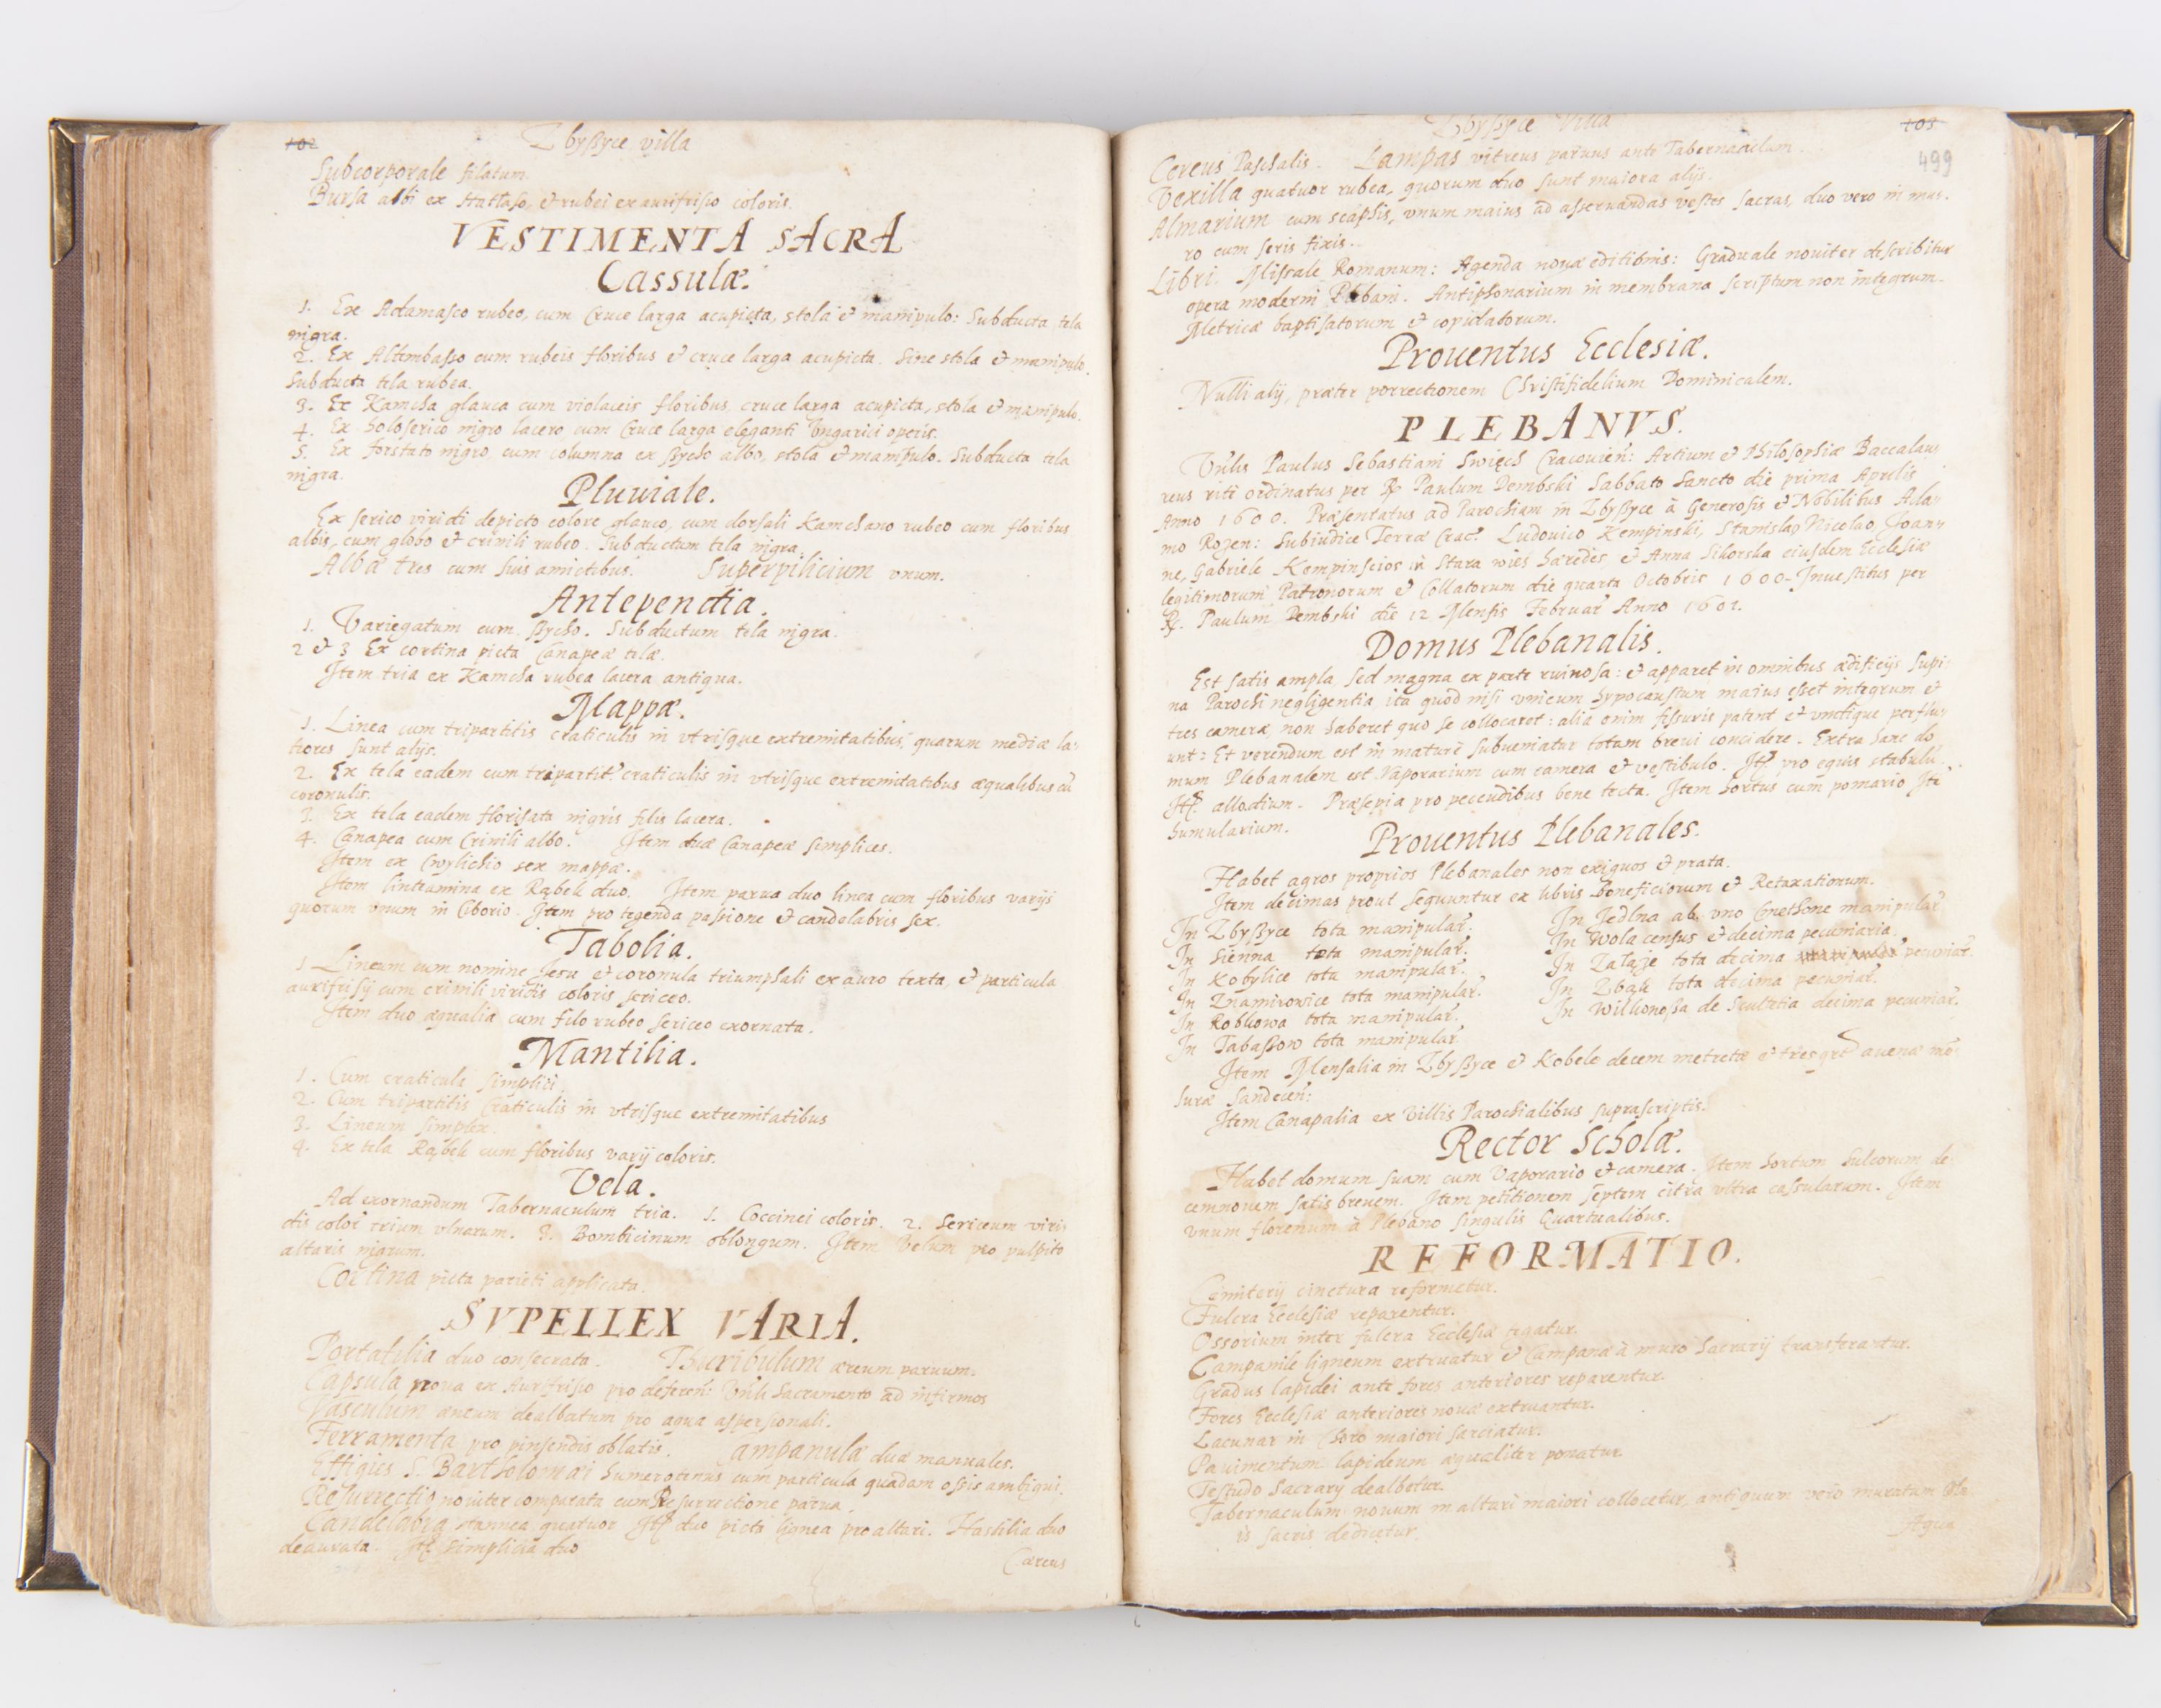 102
Zbyßyce villa
Subcorporale filatum.
Bursa albi ex Hattaso, & rubei ex aurifrisio coloris.
VESTIMENTA SACRA
Cassulæ.
1. Ex Adamasco rubeo, cum Cruce larga acupicta, stola & manipulo: Subducta tela
nigra.
2. Ex Altembasso cum rubeis floribus & cruce larga acupicta. Sine stola & manipulo.
Subducta tela rubea.
3. Ex Kamcha glauca cum violaceis floribus, cruce larga acupicta, stola & manipulo.
4. Ex holoserico nigro lacero cum Cruce larga eleganti Vngarici operis.
5. Ex forstato nigro, cum columna ex ßycho albo, stola & manipulo. Subducta tela
nigra.
Pluuiale.
Ex serico viridi depicto colore glauco, cum dorsali Kamchano rubeo cum floribus
albis, cum globo & crinili rubeo. Subductum tela nigra.
Albæ tres cum suis amictibus. Superpilicium vnum.
Antependia.
1. Variegatum cum ßycho. Subductum tela nigra.
2 & 3 Ex cortina picta Canapeæ telæ.
Item tria ex Kamcha rubea lacera antiqua.
Mappæ.
1. Linea cum tripartitis craticulis in vtrisque extremitatibus, quarum mediæ la-
tiores sunt alijs.
2. Ex tela eadem cum tripartit. craticulis in vtrisque extremitatibus æqualibus cū
coronulis.
3. Ex tela eadem florisata nigris filis lacera.
4. Canapea cum Crinili albo. Item duæ Canapeæ simplices.
Item ex Cwylichio sex mappæ.
Item linteamina ex Rąbek duo. Item parua duo linea cum floribus varijs
quorum vnum in Ciborio. Item pro tegenda passione & candelabris sex.
Tabolia.
1 Lineum cum nomine Jesu & coronula triumphali ex auro texta, & particula
aurifrisij cum crinili viridis coloris sericeo.
Item duo æqualia cum filo rubeo sericeo exornata.
Mantilia.
1. Cum craticula simplici
2. Cum tripartitis Craticulis in vtrisque extremitatibus
3. Lineum simplex.
4. Ex tela Rąbek cum floribus varij coloris.
Vela.
Ad exornandum Tabernaculum tria. 1. Coccinei coloris. 2. Sericeum viri-
dis color trium vlnarum. 3. Bombicinum oblongum. Item Velum pro pulpito
altaris nigrum.
Cortina picta parieti applicata.
SVPELLEX VARIA.
Portatilia duo consecrata. Thuribulum æreum paruum.
Capsula noua ex Aurifrisio pro deferen: Vnli Sacramento ad infirmos
Vasculum æneum dealbatum pro aqua aspersionali.
Ferramenta pro pinsendis oblatis. Campanulæ duæ manuales.
Effigies S. Bartholomæi humerotenus cum particula quadam ossis ambigui.
Resurrectio nouiter comparata cum Resurrectione parua.
Candelabra stannea quatuor Itē duo picta lignea pro altari. Hastilia duo
deaurata. Itē simplicia duo
Cereus
103
499
Zbyßyce Villa
Cereus Paschalis. Lampas vitreus paruus ante Tabernaculum.
Vexilla quatuor rubea, quorum duo sunt maiora alijs.
Almarium cum scaphis, vnum maius ad asseruandas vestes sacras, duo vero in mu-
ro cum seris fixis.
Libri. Missale Romanum: Agenda nouæ editionis: Graduale nouiter describitur
opera moderni Plebani. Antiphonarium in membrana scriptum non integrum.
Metricæ baptisatorum & copulatorum.
Prouentus Ecclesiæ.
Nulli alij, præter porrectionem Christifidelium Dominicalem.
PLEBANVS.
Vnlis Paulus Sebastiani Swięch Cracouień: Artium & Philosophiæ Baccalau-
reus rite ordinatus per R. Paulum Dembski Sabbato Sancto die prima Aprilis
Anno 1600. Præsentatus ad Parochiam in Zbyßyce à Generosis & Nobilibus Ada-
mo Rozen: Subiudice Terræ Crac. Ludouico Kempinski, Stanislao Nicolao, Joan-
ne, Gabriele Kempinscios in Stara wies hæredes, & Anna Sikorska eiusdem Ecclesiæ
legitimorum Patronorum & Collatorum die quarta Octobris 1600. Inuestitus per
R. Paulum Dembski die 12 Mensis Februar Anno 1601.
Domus Plebanalis.
Est satis ampla sed magna ex parte ruinosa: & apparet in omnibus ædificijs supi-
na Parochi negligentia ita quod nisi vnicum hypocaustum maius esset integrum &
tres cameræ, non haberet quo se collocaret: alia enim fissuris patent & vndique perflu-
unt: Et verendum est ni mature subueniatur totam breui concidere. Extra hanc do
mum Plebanalem est Vaporarium cum camera & vestibulo. Itē pro equis stabulū.
Itē allodium. Præsepia pro pecudibus bene tecta. Item hortus cum pomario Itē
humularium.
Prouentus Plebanales.
Habet agros proprios Plebanales non exiguos & prata.
Item decimas prout sequuntur ex libris Beneficiorum & Retaxationum.
In Zbyßyce tota manipular.
In Sienna tota manipular.
In Kobylice tota manipular.
In Znamirowice tota manipular.
In Robkowa tota manipular.
In Tabaßow tota manipular
In Jedlna ab vno Cmethone manipular
In Wola census & decima pecuniaria
In Załąze tota decima pecuniar.
In Zbąk tota decima pecuniar.
In Wilkonoßa de Scultetia decima pecuniar.
Item Mensalia in Zbyßyce & Kobele decem metretæ & tres qrt auenæ mē-
suræ Sandecen:
Item Canapalia ex Villis Parochialibus suprascriptis.
Rector Scholæ.
Habet domum suam cum Vaporario & camera. Item hortum sulcorum de-
cemnouem satis breuem. Item petitionem septem citra vltra cassularum. Item
vnum florenum à Plebano singulis Quartualibus.
REFORMATIO.
Cemiterij cinctura reformetur.
Fulcra Ecclesiæ reparentur.
Ossorium inter fulcra Ecclesiæ tegatur.
Campanile ligneum extruatur & Campana à muro Sacrarij transferantur.
Gradus lapidei ante fores anteriores reparentur.
Fores Ecclesiæ anteriores nouæ extruantur.
Lacunar in Choro maiori sarciatur.
Pauimentum lapideum æqualiter ponatur
Testudo Sacrarij dealbetur.
Tabernaculum nouum in altari maiori collocetur, antiquum vero muratum Ole
is sacris dedicetur.
Aqua